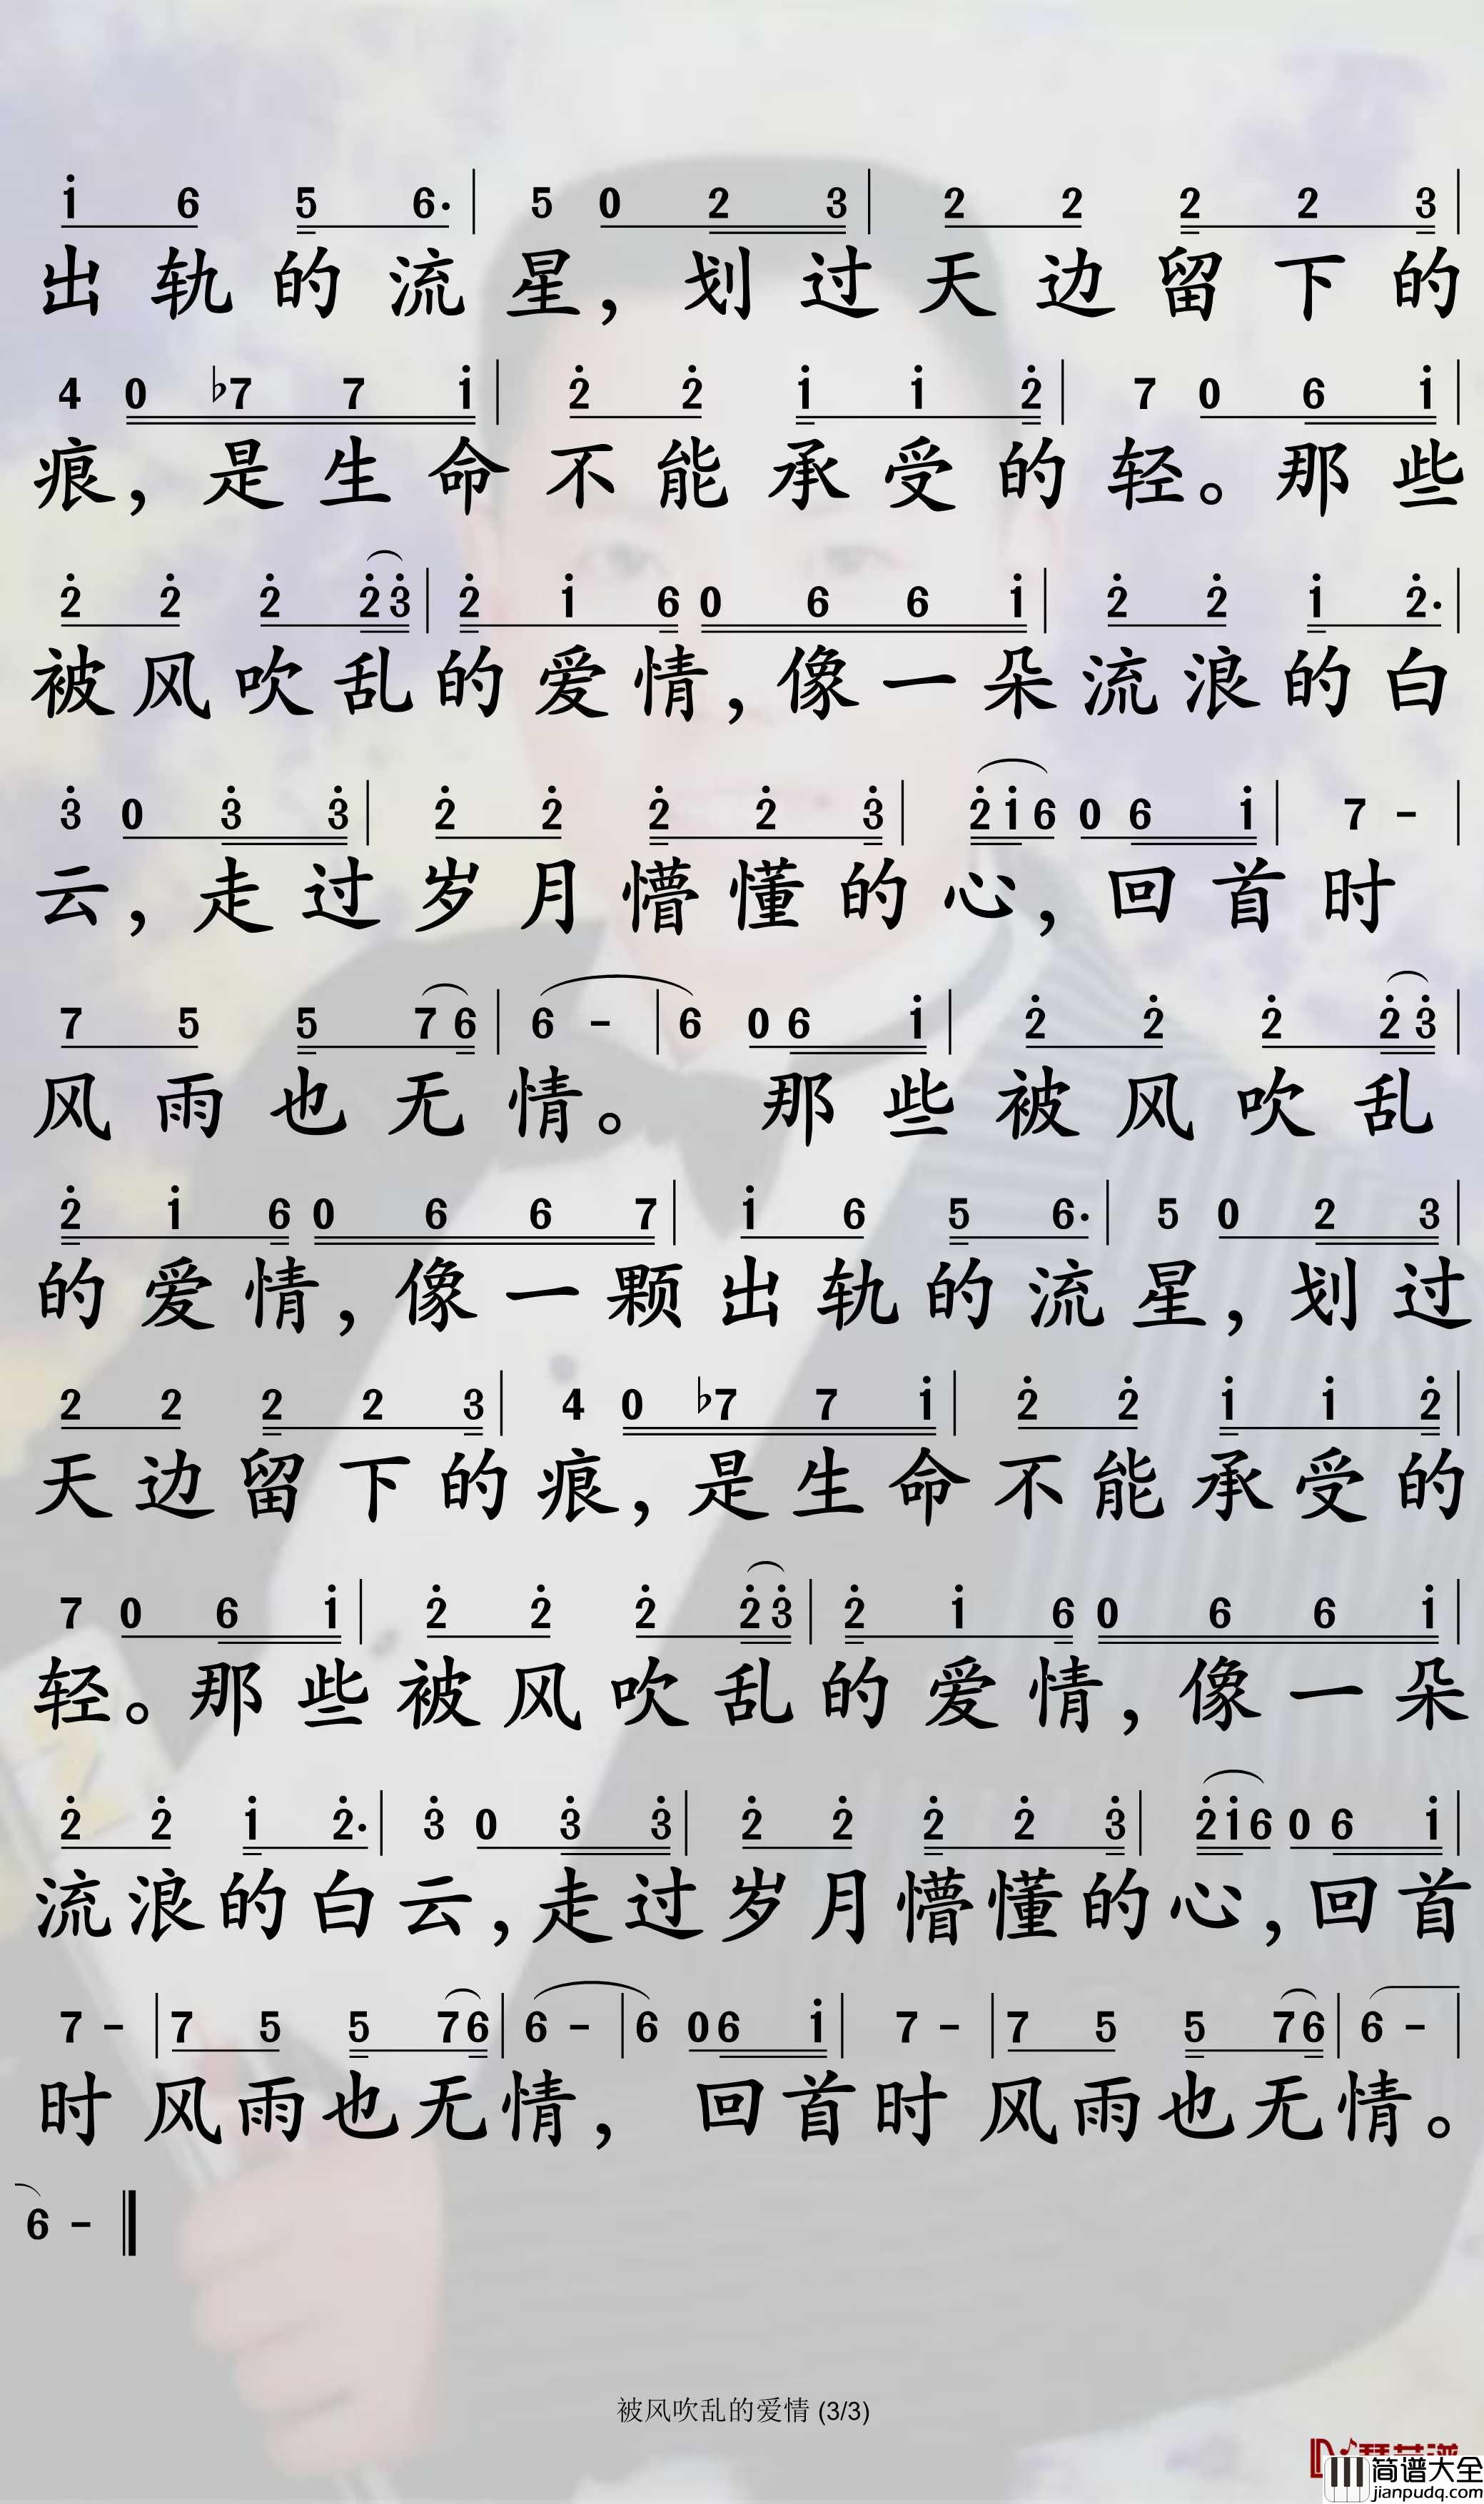 i 6 5 6· | 5 0 2 3 | 2 2 2 2 3 |
出轨的流星，划过天边留下的
4 0 ♭7 7 i | 2̇ 2̇ i i 2̇ | 7 0 6 i |
痕，是生命不能承受的轻。那些
2̇ 2̇ 2̇ 2̇ 3̇ | 2̇ i 6 0 6 6 i | 2̇ 2̇ i 2̇· |
被风吹乱的爱情，像一朵流浪的白
3̇ 0 3̇ 3̇ | 2̇ 2̇ 2̇ 2̇ 3̇ | 2̇ i 6 0 6 i | 7 - |
云，走过岁月懵懂的心，回首时
7 5 5 7 6 | 6 - | 6 0 6 i | 2̇ 2̇ 2̇ 2̇ 3̇ |
风雨也无情。 那些被风吹乱
2̇ i 6 0 6 6 7 | i 6 5 6· | 5 0 2 3 |
的爱情，像一颗出轨的流星，划过
2 2 2 2 3 | 4 0 ♭7 7 i | 2̇ 2̇ i i 2̇ |
天边留下的痕，是生命不能承受的
7 0 6 i | 2̇ 2̇ 2̇ 2̇ 3̇ | 2̇ i 6 0 6 6 i |
轻。那些被风吹乱的爱情，像一朵
2̇ 2̇ i 2̇· | 3̇ 0 3̇ 3̇ | 2̇ 2̇ 2̇ 2̇ 3̇ | 2̇ i 6 0 6 i |
流浪的白云，走过岁月懵懂的心，回首
7 - | 7 5 5 7 6 | 6 - | 6 0 6 i | 7 - | 7 5 5 7 6 | 6 - |
时风雨也无情， 回首时风雨也无情。
6 - ‖
被风吹乱的爱情 (3/3)
简谱大全
jianpudq.com